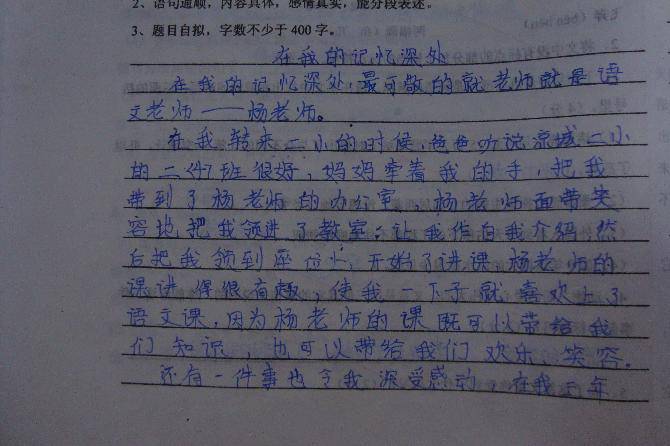 2、语句通顺，内容具体，感情真实，能分段表述。
3、题目自拟，字数不少于400字。
在我的记忆深处
在我的记忆深处，最可敬的就老师就是语
文老师——杨老师。
在我转来二小的时候，爸爸听说凉城二小
的二班很好，妈妈牵着我的手，把我
带到了杨老师的办公室，杨老师面带笑
容地把我领进了教室；让我作自我介绍，然
后把我领到座位上，开始了讲课，杨老师的
课讲得很有趣，使我一下子就喜欢上了
语文课，因为杨老师的课既可以带给我
们知识，也可以带给我们欢乐、笑容。
还有一件事也令我深受感动，在我三年